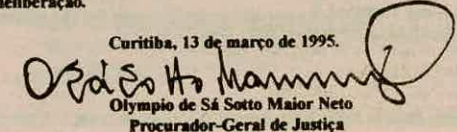 deliberação.
Curitiba, 13 de março de 1995.
Olympio de Sá Sotto Maior Neto
Procurador-Geral de Justiça